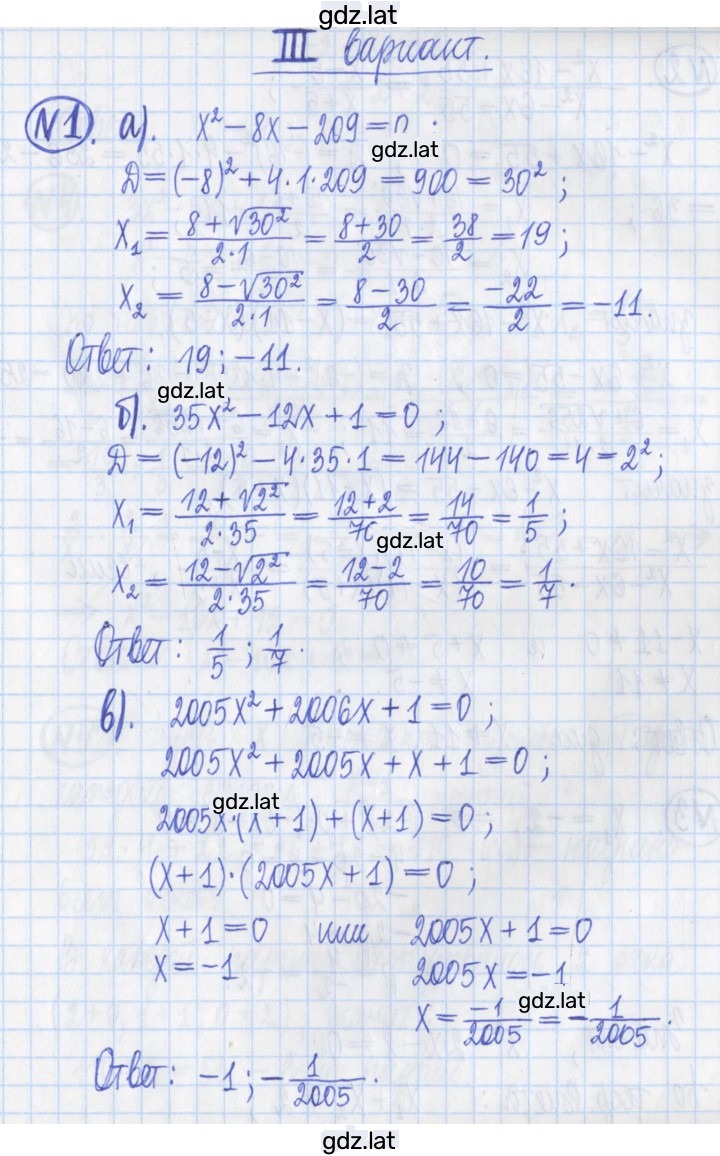 gdz.lat
III вариант.
№1. а). x² − 8x − 209 = 0.
gdz.lat
Д = (−8)² + 4·1·209 = 900 = 30²;
x₁ = (8+√30²)/(2·1) = (8+30)/2 = 38/2 = 19;
x₂ = (8−√30²)/(2·1) = (8−30)/2 = −22/2 = −11.
Ответ: 19; −11.
gdz.lat
б). 35x² − 12x + 1 = 0;
Д = (−12)² − 4·35·1 = 144 − 140 = 4 = 2²;
x₁ = (12+√2²)/(2·35) = (12+2)/70 = 14/70 = 1/5;
gdz.lat
x₂ = (12−√2²)/(2·35) = (12−2)/70 = 10/70 = 1/7.
Ответ: 1/5; 1/7.
в). 2005x² + 2006x + 1 = 0;
2005x² + 2005x + x + 1 = 0;
gdz.lat
2005x·(x+1) + (x+1) = 0;
(x+1)·(2005x+1) = 0;
x+1 = 0 или 2005x+1 = 0
x = −1 2005x = −1
gdz.lat
x = −1/2005 = −1/2005.
Ответ: −1; −1/2005.
gdz.lat